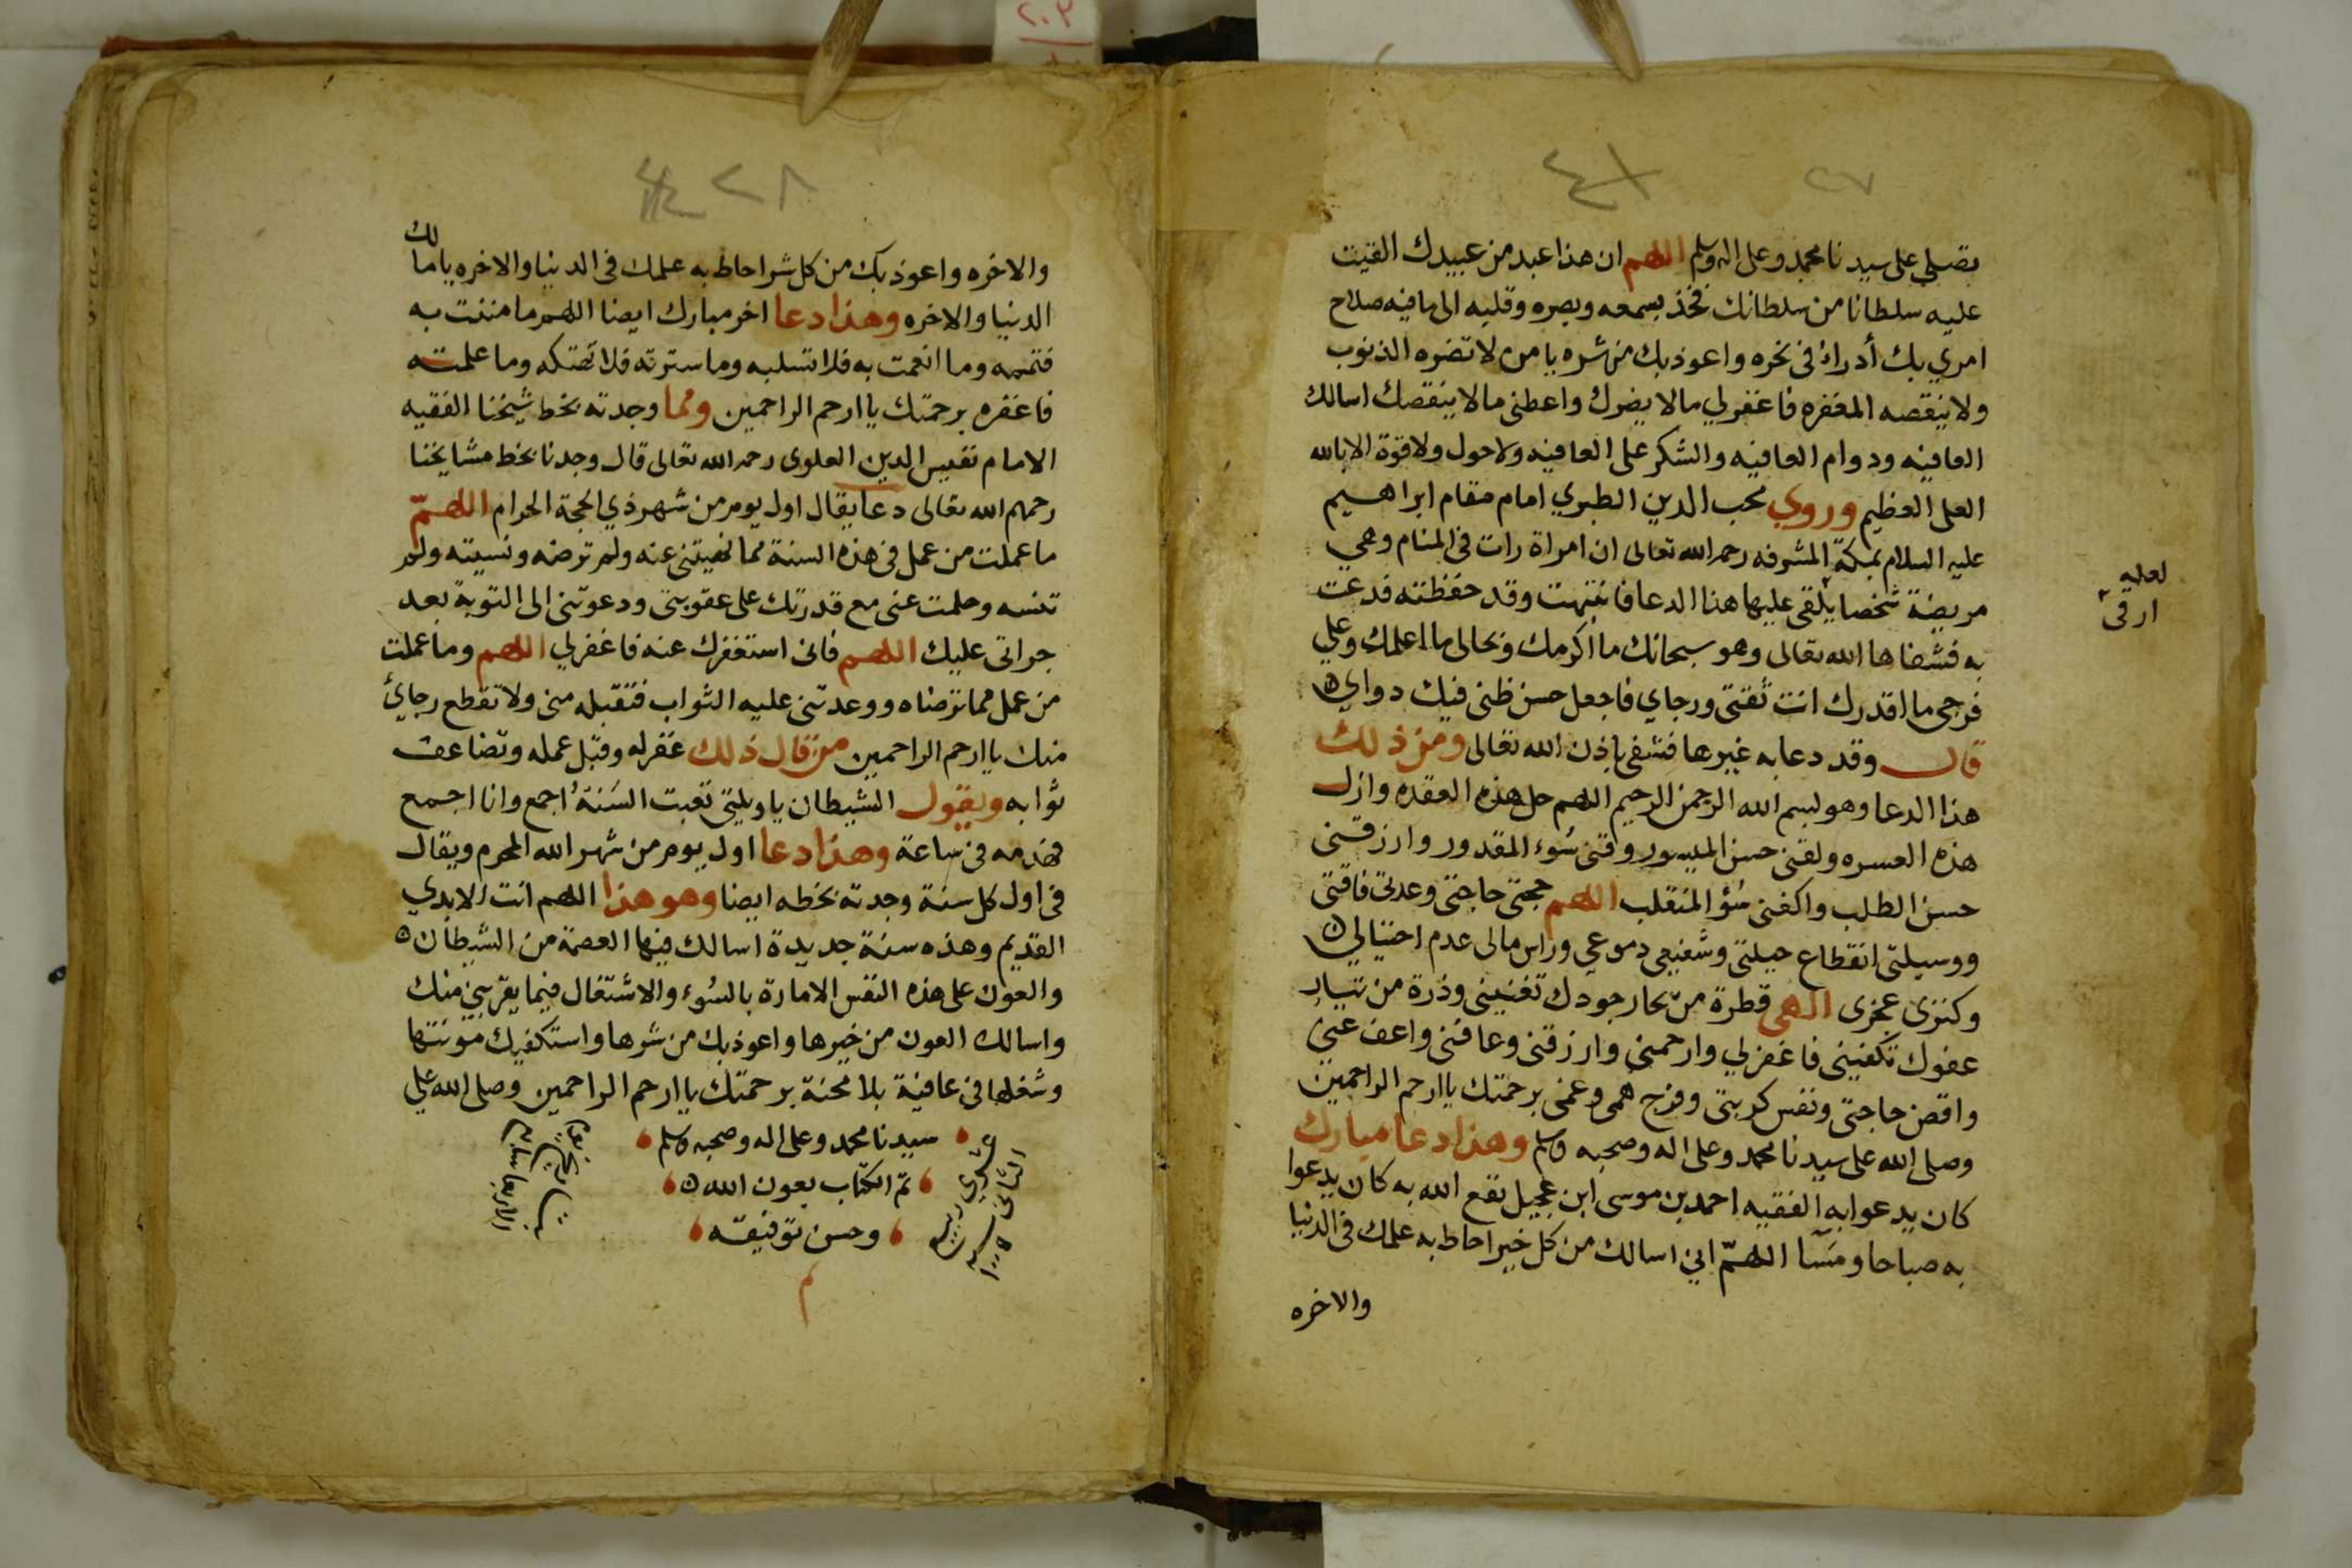 ٢٧
تصلي على سيدنا محمد وعلى اله وسلم اللهم ان هذا عبد من عبيدك القيت
عليه سلطانا من سلطانك فخذ بسمعه وبصره وقلبه الى ما فيه صلاح
امري بك أدرأ في نحره واعوذ بك من شره يا من لا تضره الذنوب
ولا ينقصه المغفره فاغفر لي مالا يضرك واعطني مالا ينقصك اسالك
العافيه ودوام العافيه والشكر على العافيه ولا حول ولا قوة الا بالله
العلى العظيم وروي محب الدين الطبري امام مقام ابراهيم
عليه السلام بمكة المشرفه رحمه الله تعالى ان امراة رات في المنام وهي
مريضة شخصا يلقى عليها هذا الدعا فانتبهت وقد حفظته فدعت
به فشفاها الله تعالى وهو سبحانك ما اكرمك وبحالى ما اعلمك وعلى
فرجى ما اقدرك انت ثقتى ورجاي فاجعل حسن ظنى فيك دواي
قال وقد دعا به غيرها فشفى باذن الله تعالى ومن ذلك
هذا الدعا وهو بسم الله الرحمن الرحيم اللهم حل هذه العقده وازل
هذه العسره ولقنى حسن الميسور وقنى سُوء المقدور وارزقنى
حسن الطلب واكفنى سُؤ المنقلب اللهم حجتى حاجتى وعدتى فاقتى
ووسيلتى انقطاع حيلتى وشفيعى دموعي وراس مالى عدم احتيالي
وكنزى عجزى الهى قطرة من بحار جودك تغنينى وذرة من تيار
عفوك تكفينى فاغفر لي وارحمنى وارزقنى وعافنى واعف عنى
واقض حاجتى ونفس كربتى وفرج همى وغمى برحمتك ياارحم الراحمين
وصلى الله على سيدنا محمد وعلى اله وصحبه وسلم وهذا دعا مبارك
كان يدعوا به الفقيه احمد بن موسى ابن عجيل نفع الله به كان يدعوا
به صباحا ومسآ اللهمّ اني اسالك من كل خير احاط به علمك في الدنيا
والاخره
لعله
ارقى
٢٨
والاخره واعوذ بك من كل شر احاط به علمك فى الدنيا والاخره يا مالك
الدنيا والاخره وهذا دعا اخر مبارك ايضا اللهم ما مننت به
فتممه وما انعمت به فلا تسلبه وما سترته فلا تهتكه وما علمته
فاغفره برحمتك ياارحم الراحمين ومما وجدته بخط شيخنا الفقيه
الامام نفيس الدين العلوى رحمه الله تعالى قال وجدنا بخط مشايخنا
رحمهم الله تعالى دعا يقال اول يوم من شهر ذي الحجة الحرام اللهمّ
ما عملت من عمل فى هذه السنة مما نهيتنى عنه ولم ترضه ونسيته ولم
تنسه وحلمت عنى مع قدرتك على عقوبتى ودعوتنى الى التوبة بعد
جراتى عليك اللهم فانى استغفرك عنه فاغفر لي اللهم وما عملت
من عمل مما ترضاه ووعدتنى عليه الثواب فتقبله منى ولا تقطع رجائ
منك ياارحم الراحمين من قال ذلك غفر له وقبل عمله وتضاعف
ثوابه ويقول الشيطان ياويلتى تعبت السَنَةُ اجمع وانا اجمع
فهدمه فى ساعة وهذا دعا اول يوم من شهر الله المحرم ويقال
فى اول كل سنة وجدته بخطه ايضا وهو هذا اللهم انت الابدي
القديم وهذه سنة جديدة اسالك فيها العصمة من الشيطان
والعون على هذه النفس الامارة بالسُوء والاشتغال فيما يقربنى منك
واسالك العون من خيرها واعوذ بك من شرها واستكفيك مؤنتها
وشغلها فى عافية بلا محنة برحمتك ياارحم الراحمين وصلى الله على
سيدنا محمد وعلى اله وصحبه وسلم
تم الكتاب بعون الله
وحسن توفيقه
م